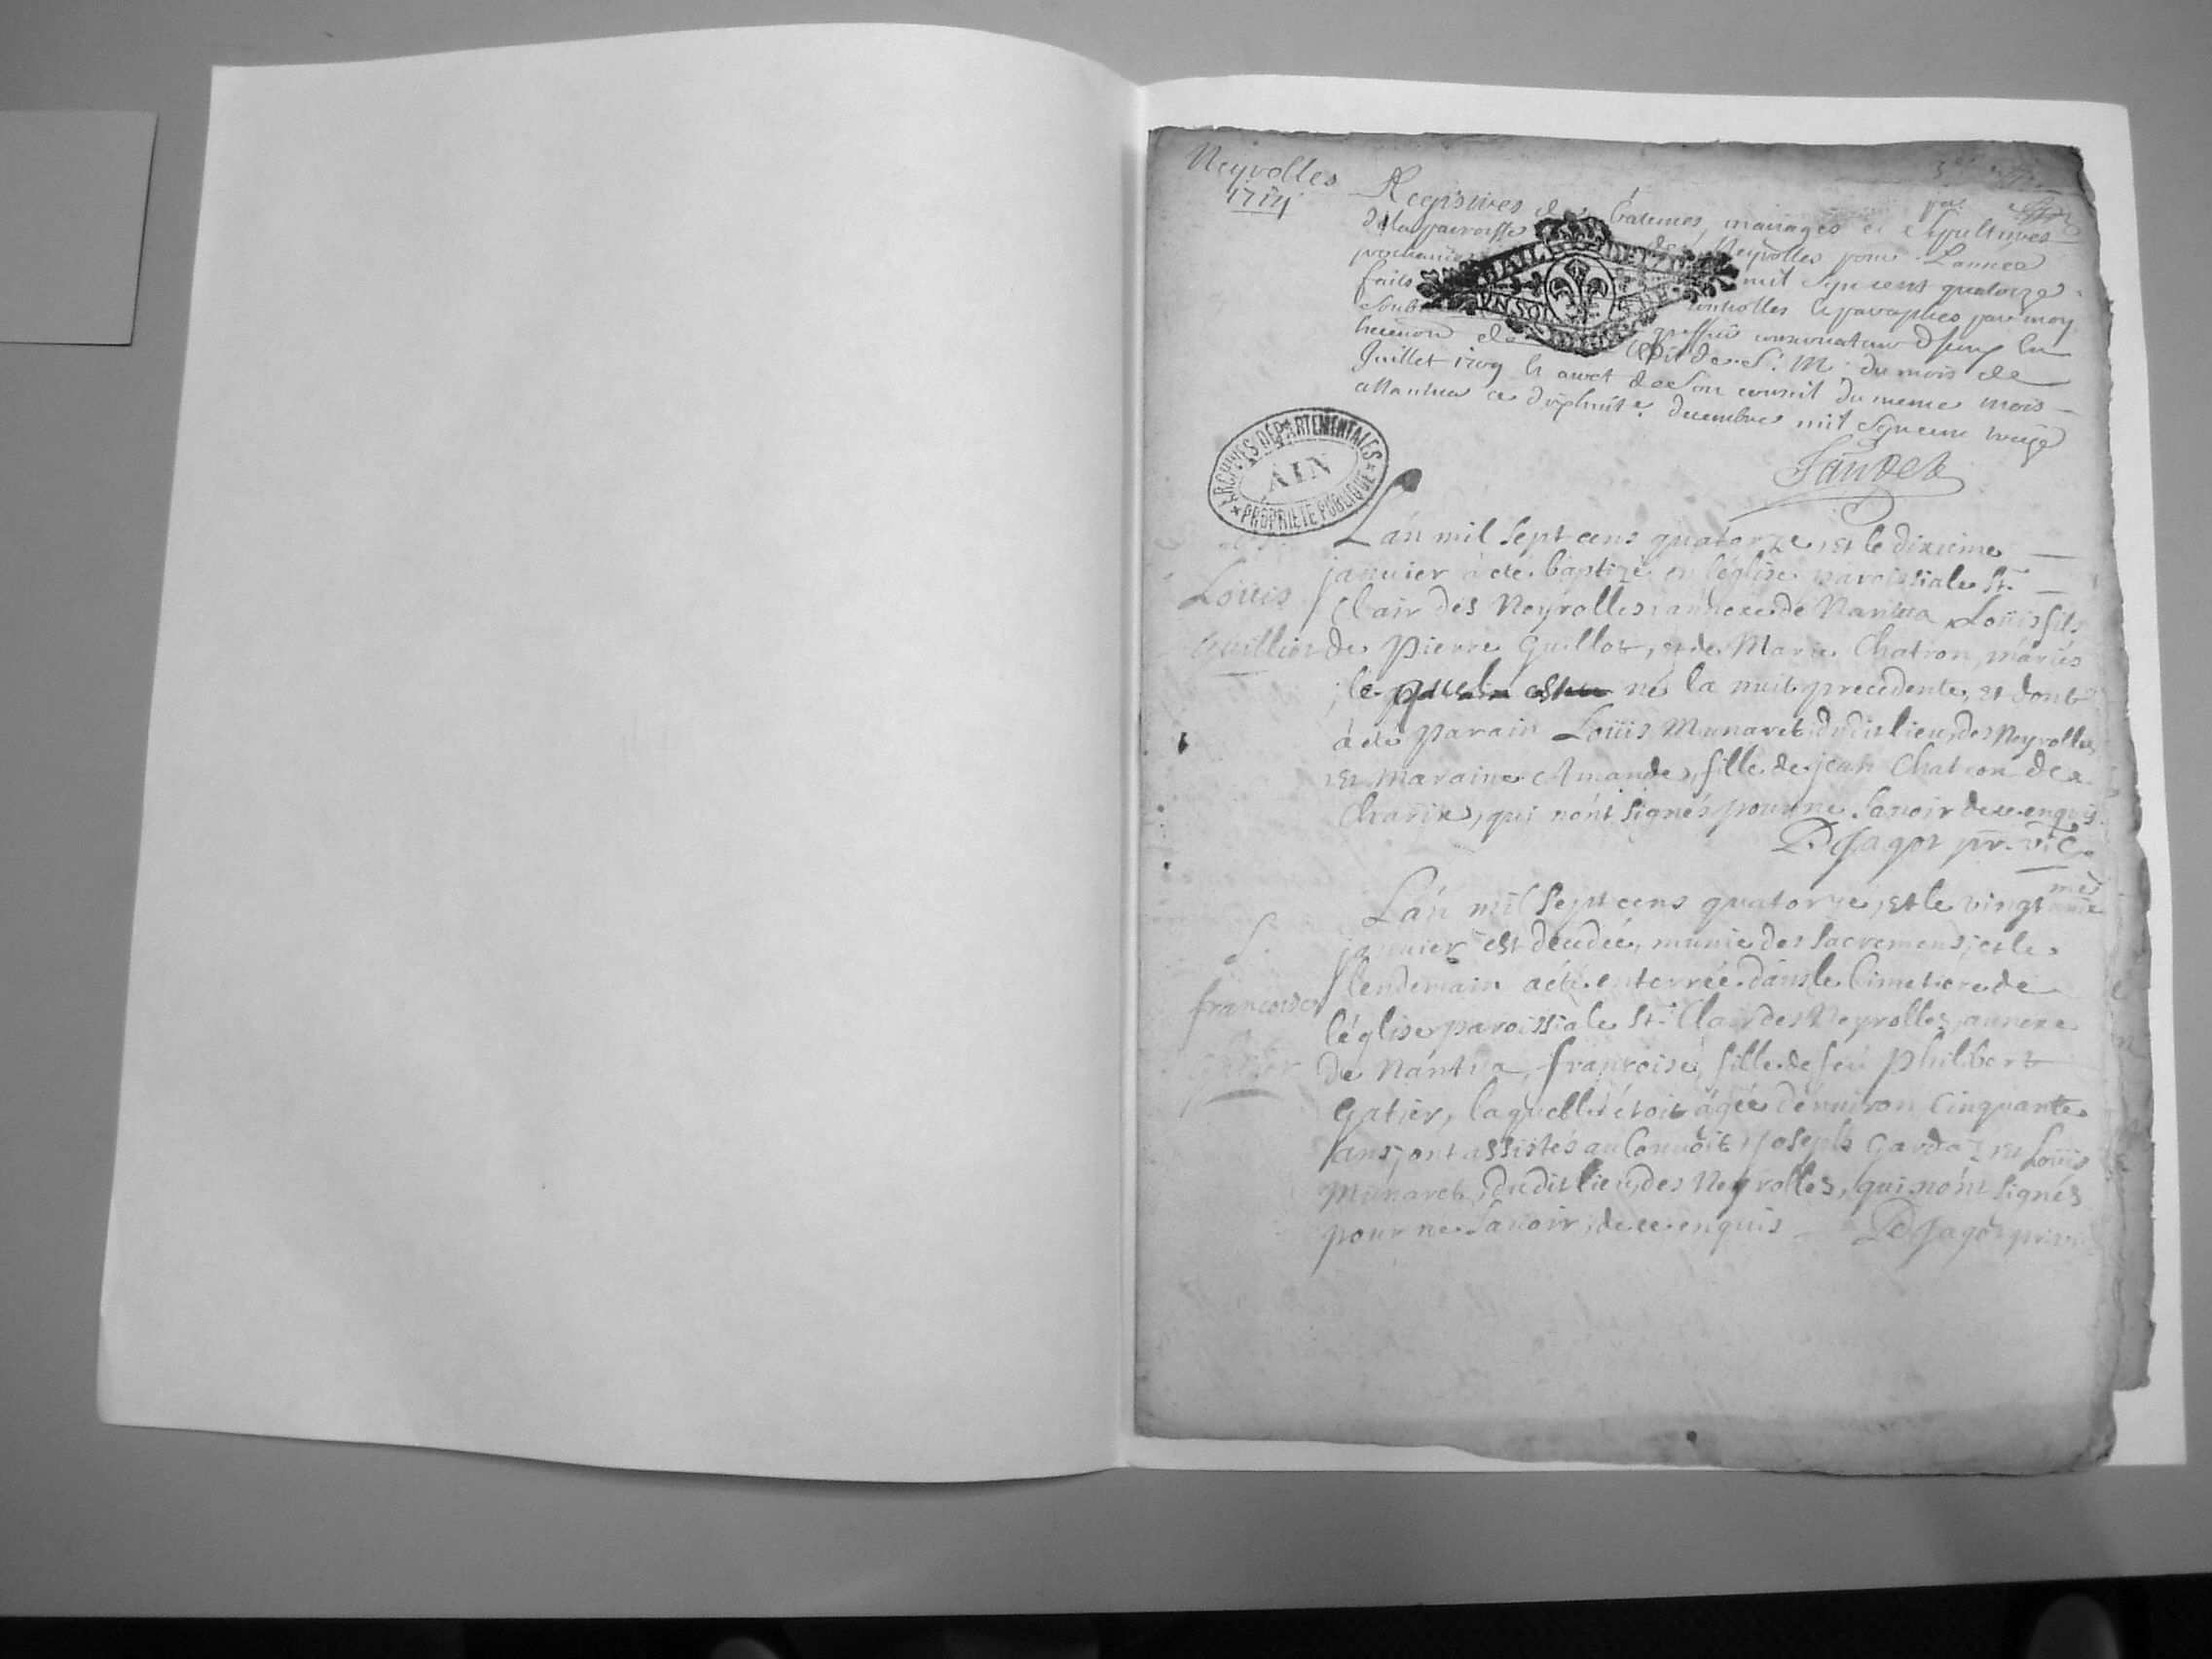 Neyrolles
1714
Registres de batemes, mariages et sepultures
de la paroisse des Neyrolles pour Lannee
prochaine mil sept cent quatorze
faits controlles et paraphes par moy
soub greffier conservateur d
de S. M. du mois de
Juillet 1709 et arret de son conseil du meme mois
a Nantua ce dixhuit e decembre mil sept cent treize
ARCHIVES DÉPARTEMENTALES
AIN
PROPRIÉTÉ PUBLIQUE
L'an mil sept cens quatorze, et le dixieme
janvier a ete baptizé en l'église paroissiale St.
Louis
Clair des Neyrolles annexe de Nantua Loüis fils
Guillot
de Pierre Guillot, et de Marie Chatron, mariés
le né la nuit precedente, et dont
à été parain Loüis Munaret, dudit lieu des Neyrolles
et maraine Amande, fille de jean Chatron de
Charix, qui n'ont signés pour ne savoir de ce enquis.
DeJagot pr. vic.
L'an mil sept cens quatorze, et le vingt me
S.
janvier est decedée, munie des sacremens, et le
lendemain a été enterrée dans le Cimetiere de
francoise
l'église paroissiale St. Clair des Neyrolles, annexe
Gatier
de Nantua, françoise, fille de feu Philibert
Gatier, laquelle étoit agée d'environ cinquante
ans, ont assistés au Convoit, joseph Gardaz et Loüis
Munaret, dudit lieu des Neyrolles, qui n'ont signés
pour ne savoir, de ce enquis DeJagot pr. vic